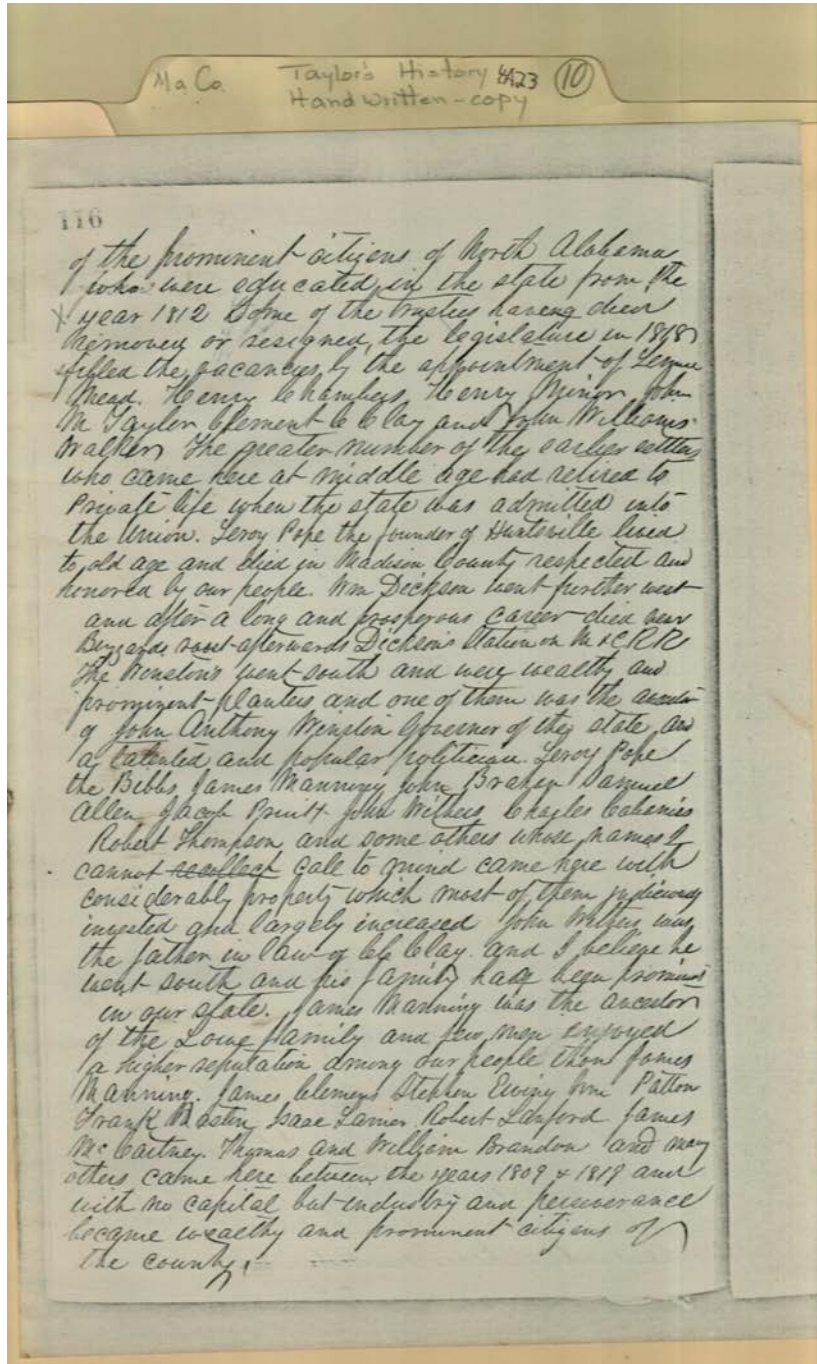 Ma Co. Taylor's History 4A23 10
Handwritten - copy
116
of the prominent citizens of North Alabama
who were educated in the state from the
x year 1812 Some of the trustees having died
removed or resigned, the legislature in 1818
filled the vacancies by the appointment of
Mead. Henry Chambers, Henry Minor, John
M Taylor Clement C Clay and John Williams
Walker. The greater number of the earlier settlers
who came here at middle age had retired to
Private life when the state was admitted into
the Union. Leroy Pope the founder of Huntsville lived
to old age and died in Madison County respected and
honored by our people. Wm Dickson went further west
and after a long and prosperous career died near
Buzzards roost afterwards Dickson's Station on M & C RR
The Winston's went south and were wealthy and
prominent planters and one of them was the
of John Anthony Winston Governor of the state, and
a talented and popular politician. Leroy Pope
the Bibbs, James Manning, John Brahan Samuel
Allen Jacob Pruitt John Withers Charles Cabaniss
Robert Thompson, and some others whose names I
cannot recollect call to mind came here with
considerably property which most of them judiciously
invested and largely increased John Withers was
the father in law of CC Clay. and I believe he
went south and his family have been prominent
in our state. James Manning was the ancestor
of the Lowe family and few men enjoyed
a higher reputation among our people than James
Manning. James Clemens Stephen Ewing Wm Patton
Frank Mastin, Isaac Lanier Robert Lanford James
McCartney. Thomas and William Brandon and many
others came here between the years 1809 & 1819 and
with no capital but industry and perseverance
became wealthy and prominent citizens of
the county.